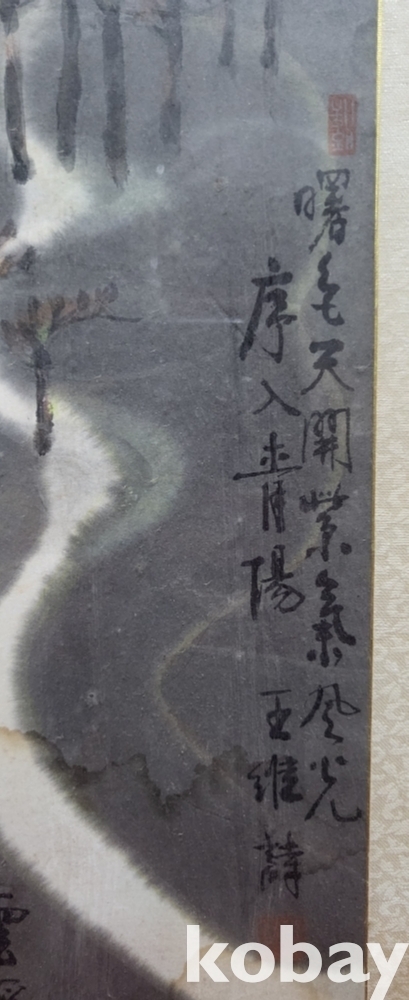 曙色天開紫氣風光
序入青陽
王維
雲
kobay